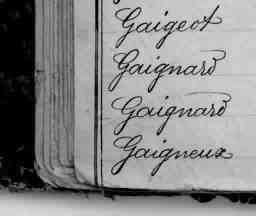 Gaigeot
Gaignard
Gaignard
Gaigneux